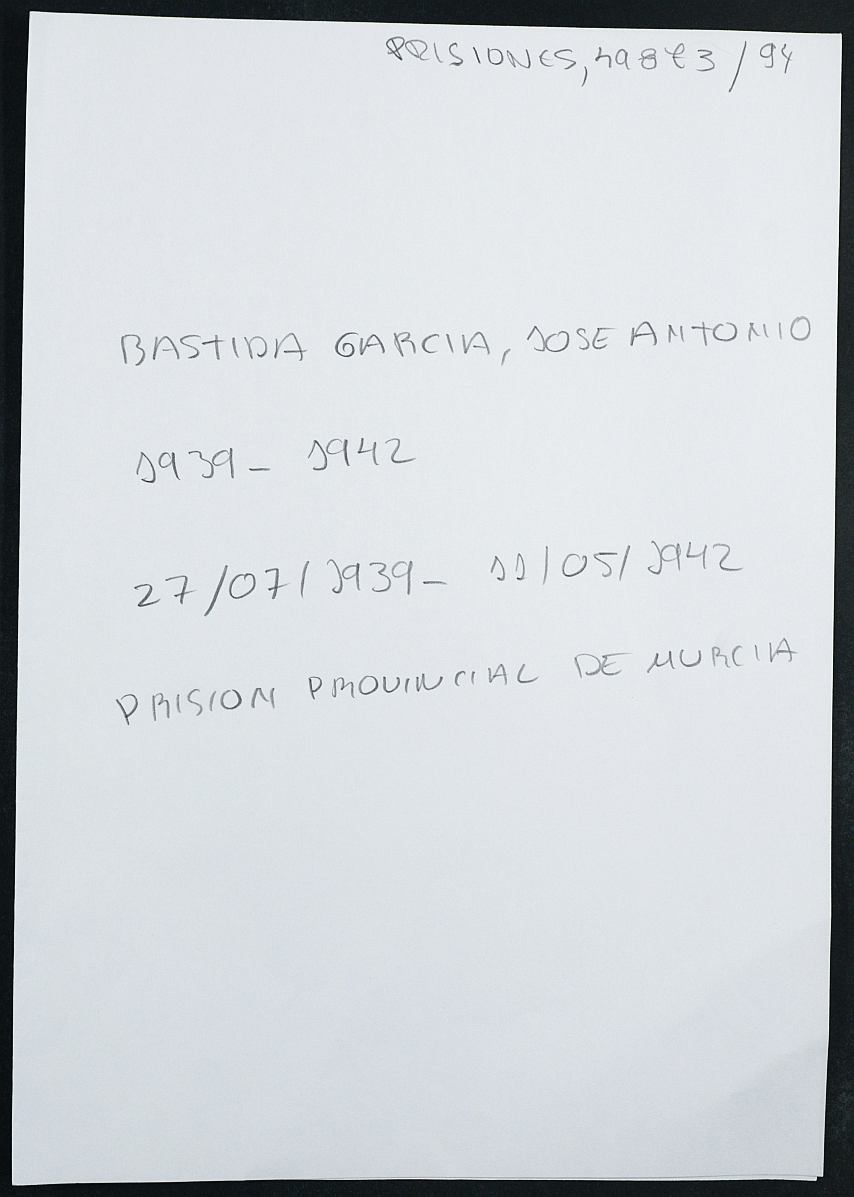 PRISIONES, 49873/94
BASTIDA GARCIA, JOSE ANTONIO
1939_ 1942
27/07/1939_ 11/05/1942
PRISION PROVINCIAL DE MURCIA